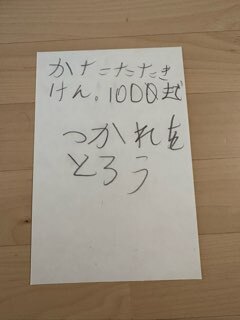 かたたたき
けん。1000まで
つかれを
とろう